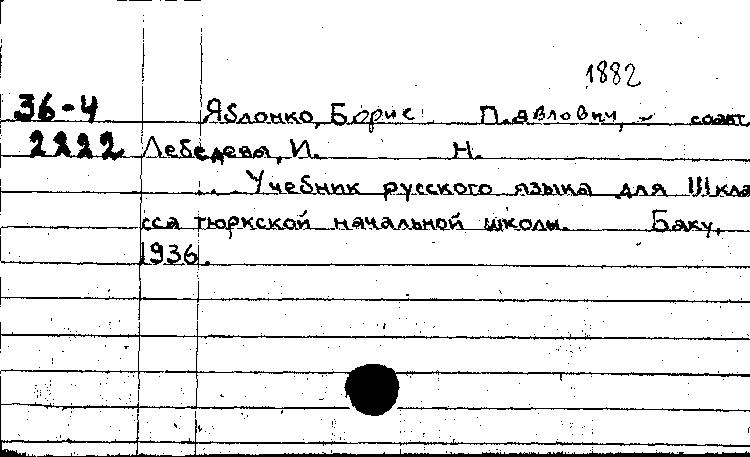 1882
36-4 Яблонко, Борис Павлович, - соавт.
2222 Лебедева, И. Н.
... Учебник русского языка для III кла
сса тюркской начальной школы. Баку,
1936.